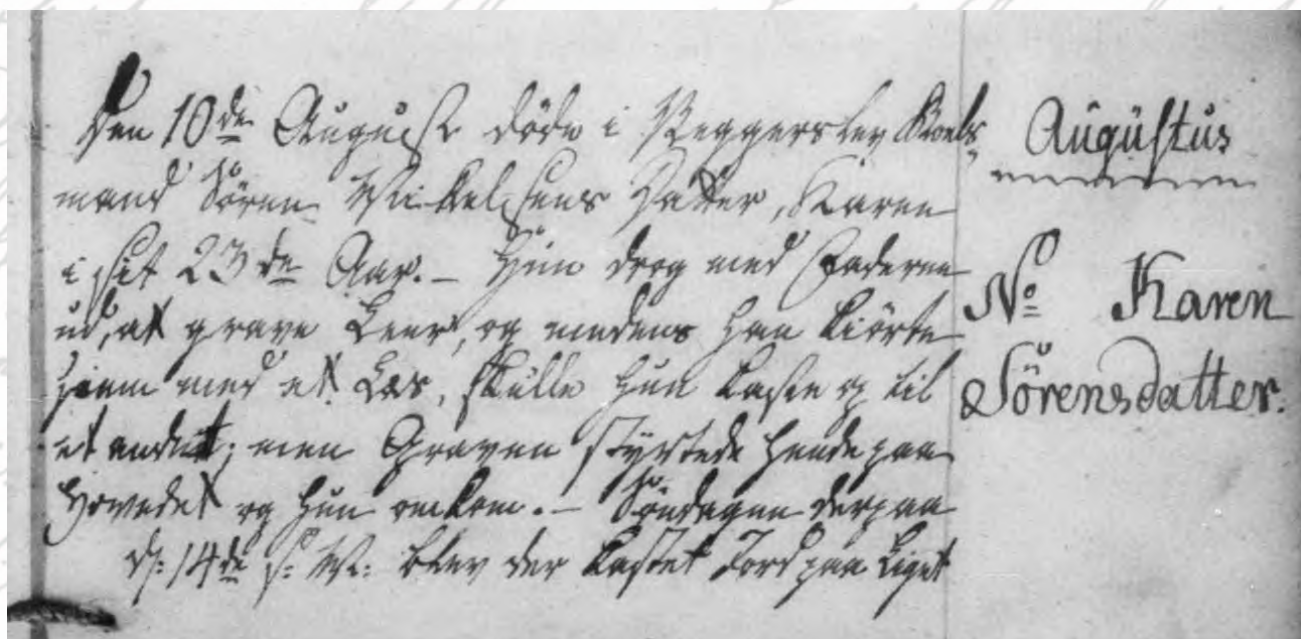 Den 10de August døde i Reggerslev Boels-
mand Sören Mikkelsens Datter, Karen
i sit 23de Aar. – Hun drog med Faderen
ud, at grave Leer, og medens han kiörte
hiem med et Læs, skulle hun kaste op til
et andet; men Graven styrtede hende paa
Hovedet og hun omkom. – Söndagen derpaa
d: 14de s: M: blev der kastet Jord paa Liget
Augüstus
No Karen
Sörensdatter.